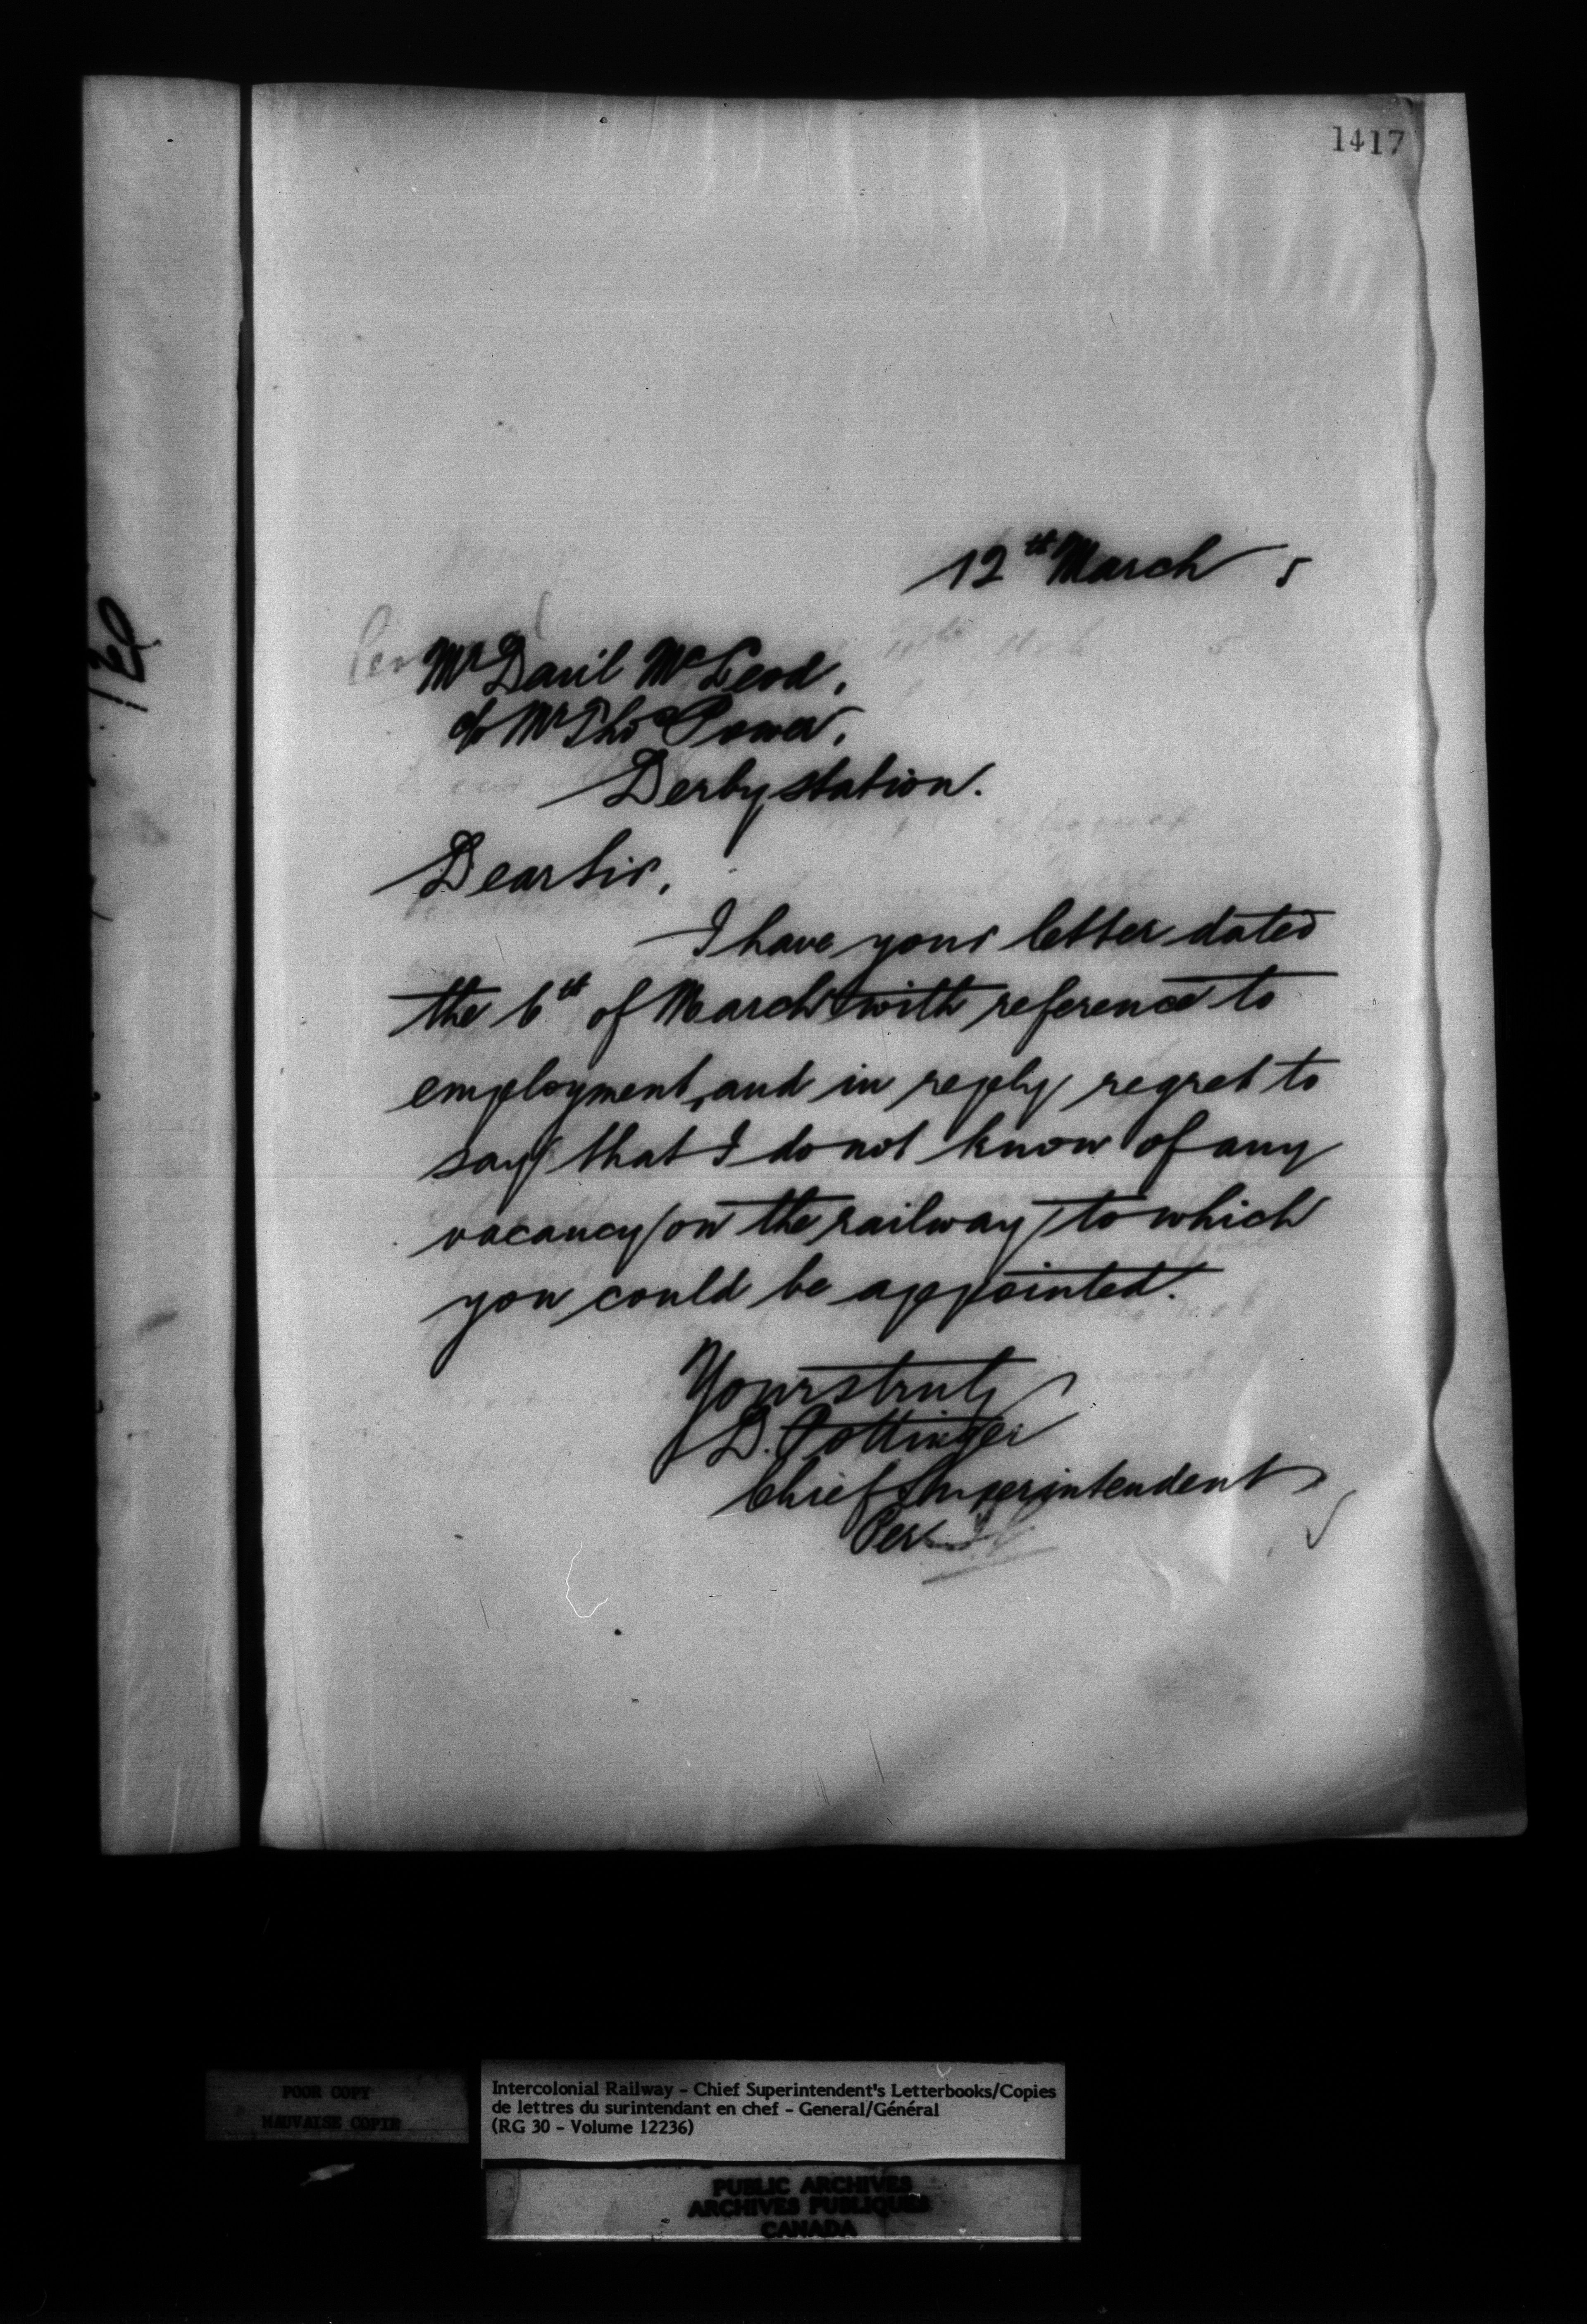 1417
12th March 5
Mr Danil McLeod,
c/o Mr Thos Power,
Derby station.
Dear Sir,
I have your letter dated
the 6th of March with reference to
employment, and in reply regret to
say that I do not know of any
vacancy on the railway to which
you could be appointed.
Yours truly
D. Pottinger
Chief Superintendent
Per
POOR COPY
MAUVAISE COPIE
Intercolonial Railway - Chief Superintendent's Letterbooks/Copies
de lettres du surintendant en chef - General/Général
(RG 30 - Volume 12236)
PUBLIC ARCHIVES
ARCHIVES PUBLIQUES
CANADA